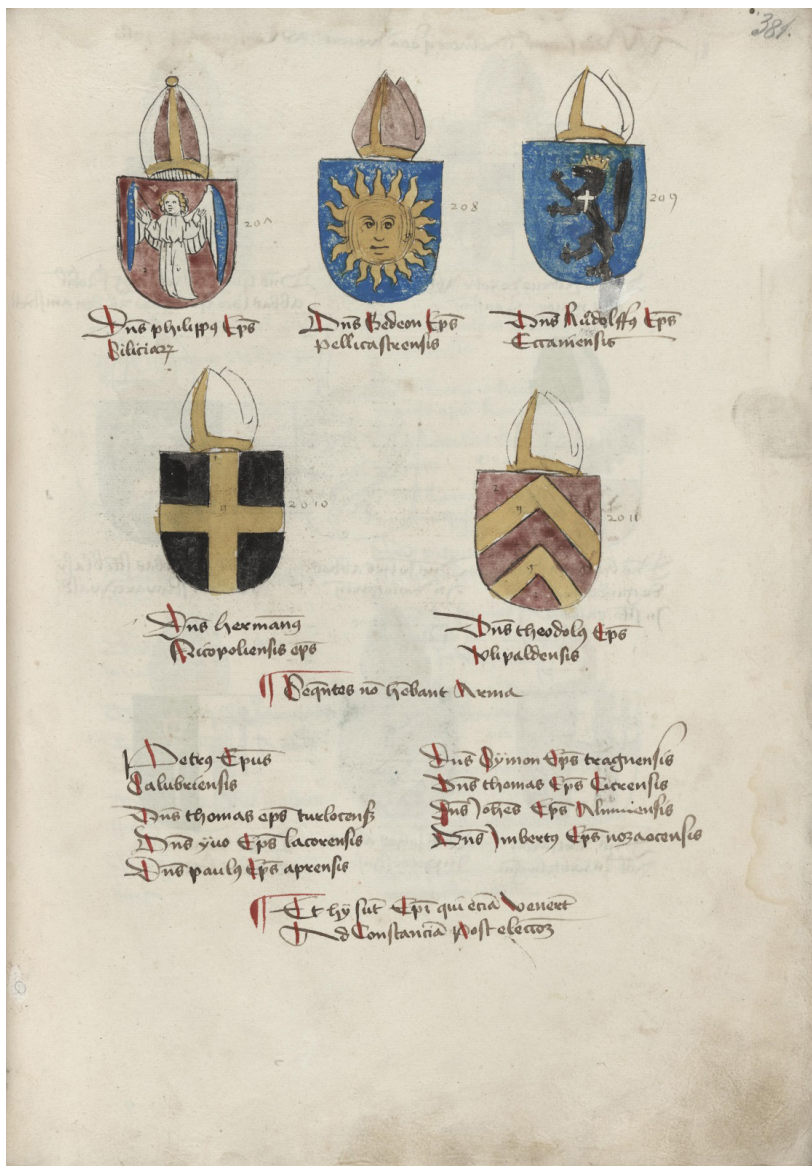 381.
207
208
209
Dn̄s philippꝰ Ep̄s
Siliciaꝝ
Dn̄s Gedeon Ep̄s
pellicastrensis
Dn̄s Růdolffꝰ Ep̄s
2010
2011
Dn̄s hermanꝰ
Nicopoliensis ep̄s
Dn̄s theodolꝰ Ep̄s
Ulipaldensis
¶ Seqn̄tes nō hēbant Arma
Petrus Ep̄us
Salubriensis
Dn̄s thomas ep̄s
Dn̄s yuo Ep̄s lacorensis
Dn̄s paulꝰ Ep̄s aprensis
Dn̄s Symon Ep̄s traguensis
Dn̄s thomas Ep̄s Circensis
Dn̄s Johēs Ep̄s
Dn̄s Imbertꝰ Ep̄s
¶ Et hÿ sūt Ep̄i qui eciā venerūt
Ad Constanciā post eleccōꝫ